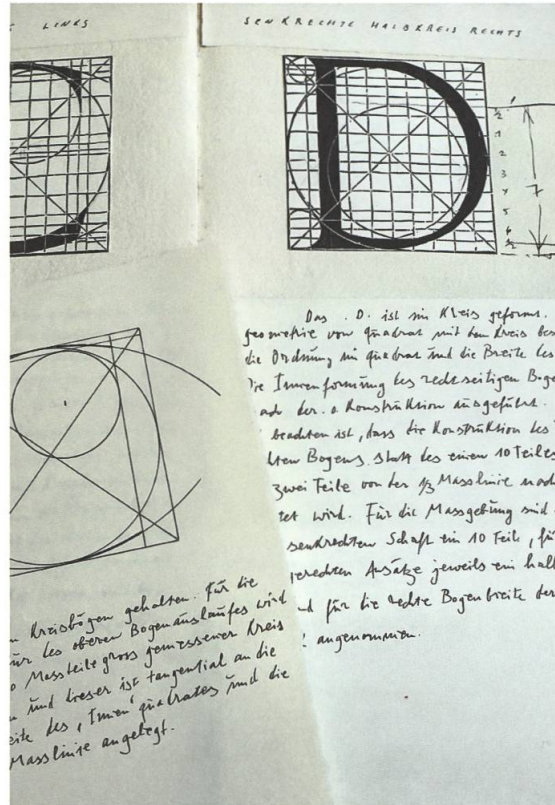 LINKS
SENKRECHTE HALBKREIS RECHTS
½
1
2
3
4
5
6
7
Das .D. ist im Kreis geformt.
geometrie von quadrat mit dem Kreis bes
die Ordnung im quadrat und die Breite des
Die Innenformung des rechtseitigen Boge
ach der .o Konstruktion ausgeführt.
beachten ist, dass die Konstruktion des
hten Bogens statt des einen 10 Teiles
zwei Teile von der ⅓ Masslinie nach
tet wird. Für die Massgebung sind
senkrechten Schaft ein 10 Teil, fü
gerechten Ansätze jeweils ein halb
d für die rechte Bogenbreite der
angenommen.
n Kreisbögen gehalten. Für die
ür des oberen Bogenauslaufes wird
o Massteile gross gemessener Kreis
n und dieser ist tangential an die
eite des 'Innen' quadrates und die
Masslinie angelegt.